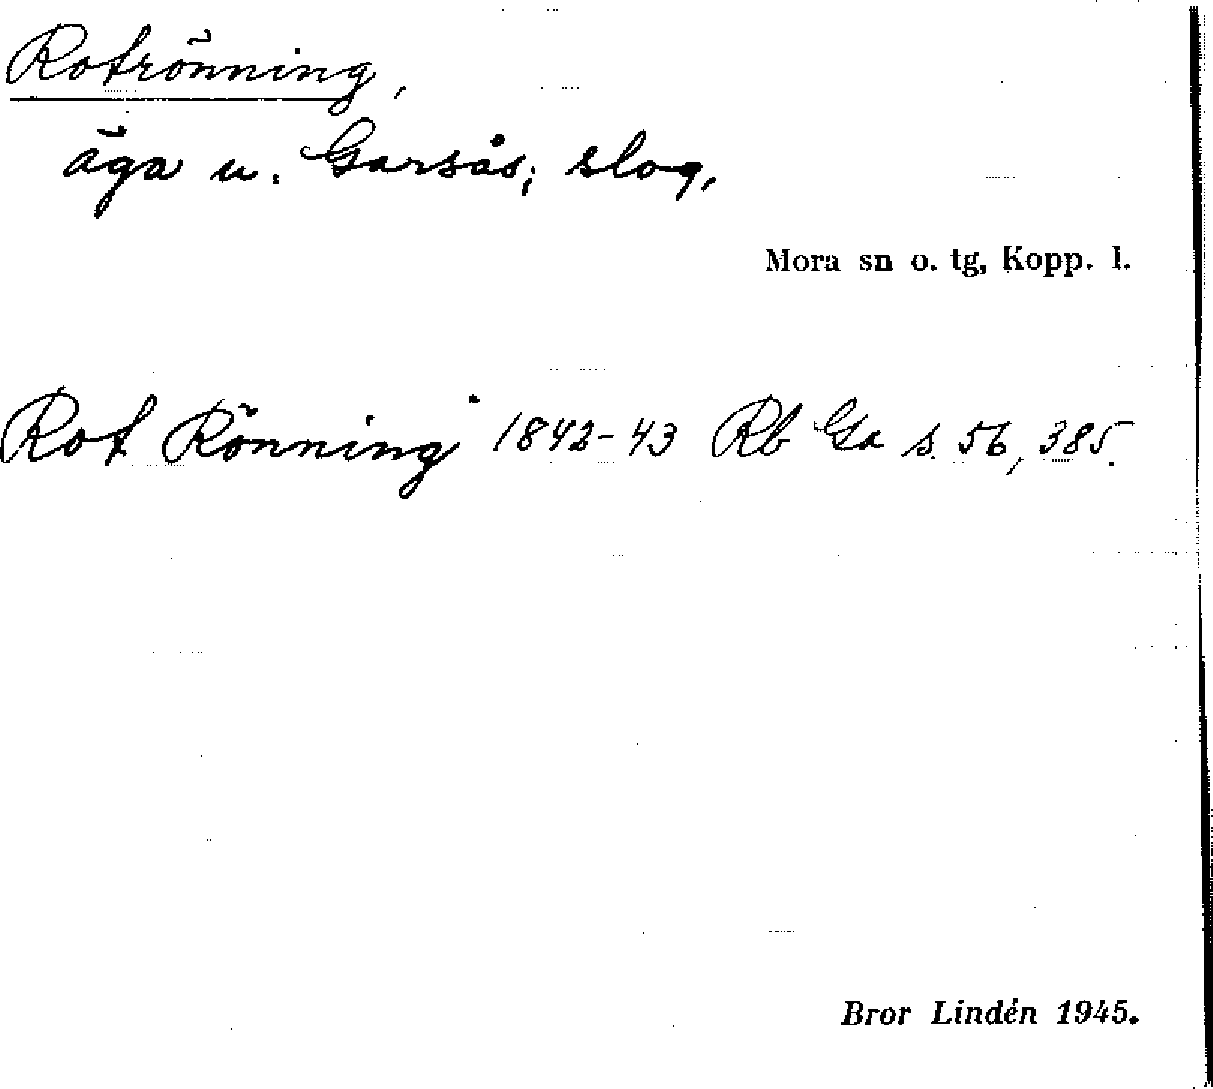 Rotrönning,
äga u. Garsås; slog.
Mora sn o. tg, Kopp. l.
Rot Rönning 1842-43 Rb Ga s. 56, 385.
Bror Lindén 1945.